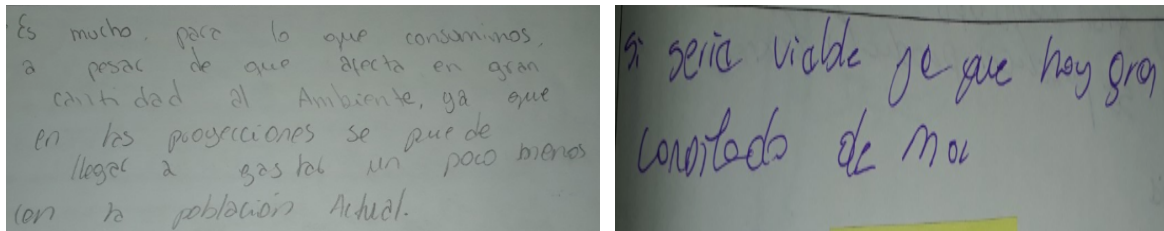 Es mucho. para lo que consumimos,
a pesar de que afecta en gran
cantidad al Ambiente, ya que
en las proyecciones se puede
llegar a gastar un poco menos
con la población Actual.
si seria viable ya que hay gran
cantidad de